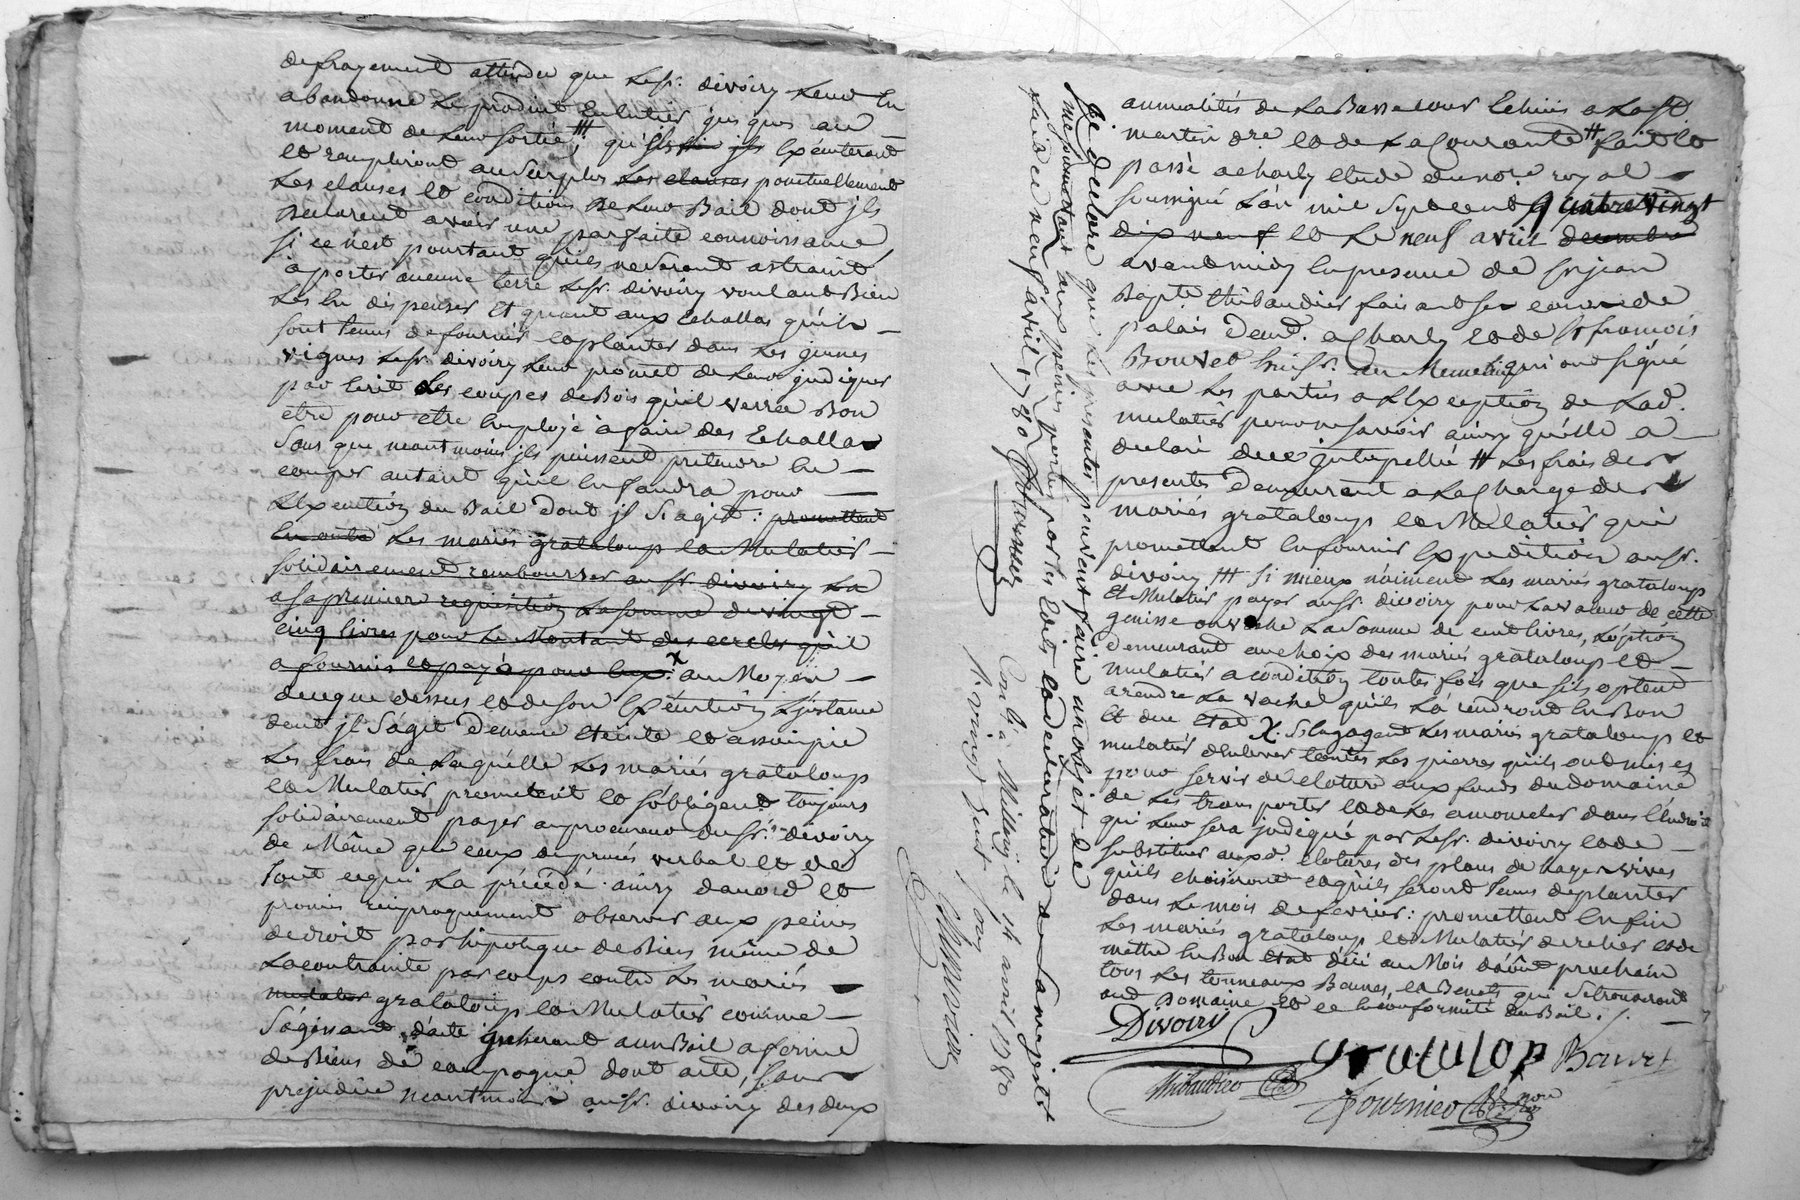 defrayement attendu que le sr. divoiry leur en
abandonne le produit En entier jusques au
moment de leur sortie, # qu'ils Exécuteront
et rempliront au surplus les clauses ponctuellement
Les clauses et conditions de leur Bail dont jls
declarent avoir une parfaite connoissance,
si ce n'est pourtant qu'ils ne seront astraint
a porter aucune terre le sr. divoiry voulant Bien
les En dispenser Et quant aux Echallas qu'ils
sont tenus de fournir et planter dans les jeunes
vignes le sr. divoiry leur promet de leur jndiquer
par Ecrit les coupes de Bois qu'il verra Bon
etre pour etre Employé à faire des Echallas
sans que neantmoins jls puissent pretendre En
couper autant qu'il En faudra pour
L'Exécution du Bail dont jl s'agit : promettent
En outre les mariés grataloup et Mulatier
solidairement rembourser au sr. divoiry La
a sa premiere requisition La somme de vingt
cinq livres pour Le Montant des cercles qu'il
a fournis et payé pour Eux. X au Moyen
de ce que dessus et de son Exécution L'jnstance
dont jl s'agit demeure eteinte et assoupie
Les frais de Laquelle Les mariés grataloup
et Mulatier promettent et s'obligent toujours
solidairement payer au procureur du sr. divoiry
de Même que ceux de procés verbal et de
tout ce qui La précédé. ainsy d'accord et
promis reciproquement observer aux peines
de droit par hipoteque de Biens même de
La contrainte par corps contre Les mariés
mulatier grataloup et Mulatier comme
s'agissant d'acte jnherant a un Bail a ferme
de Biens de campagne dont acte, sans
prejudice neantmoins au sr. divoiry des deux
Je declare que les presentes peuvent faire un objet de
me soumettant aux peines portées par les Loix et declaration de sa majesté
ce neuf avril 1780 fournier
Con.lé a Millery le 14 avril 1780
r. vingt huit sous
annualités de La Basse cour Echües a La St
martin dre. et de La Courante # fait et
passé a charly etude du nore. royal
soussigné L'an mil sept cent quatre vingt
dix neuf et le neuf avril decembre
avant midy En presence de sr jean
Bapte. thibaudier faisant
palais demt. a Charly et de sr francois
Bouvet huissr. au Meme lieu qui ont signé
avec Les parties a L'Exception de Lad.
mulatier pour ne savoir ainsy qu'elle a
declaré de ce jnterpellée # Les frais des
presentes demeurant a La charge des
mariés grataloup et Mulatier qui
promettent En fournir Expedition au sr.
divoiry ## si mieux n'aiment Les mariés grataloup
et Mulatier payer au sr. divoiry pour La valeur de cette
genisse ou vache La somme de cent livres, L'option
demeurant au choix des mariés grataloup et
mulatier a condition toutes fois que s'ils optent
a rendre La vache qu'ils La rendront En Bon
et due etat X. S'Engagent Les mariés grataloup et
mulatier d'enlever toutes Les pierres qu'ils ont mises
pour servir de cloture aux fonds du domaine
de Les transporter et de Les amonceler dans L'Endroit
qui Leur sera jndiqué par Le sr. divoiry et de
substituer auxd. clotures des plans de hayes vives
qu'ils choisiront et qu'ils seront tenus de planter
dans Le mois de fevrier : promettent En fin
Les mariés grataloup et Mulatier de relier et de
mettre En Bon etat d'ici au Mois d'août prochain
tous Les tonneaux Bennes, et Benots qui se trouveront
aud. Domaine et ce En conformité du Bail.
Divoiry
grataloup Bouvet
thibaudier
fournier nore